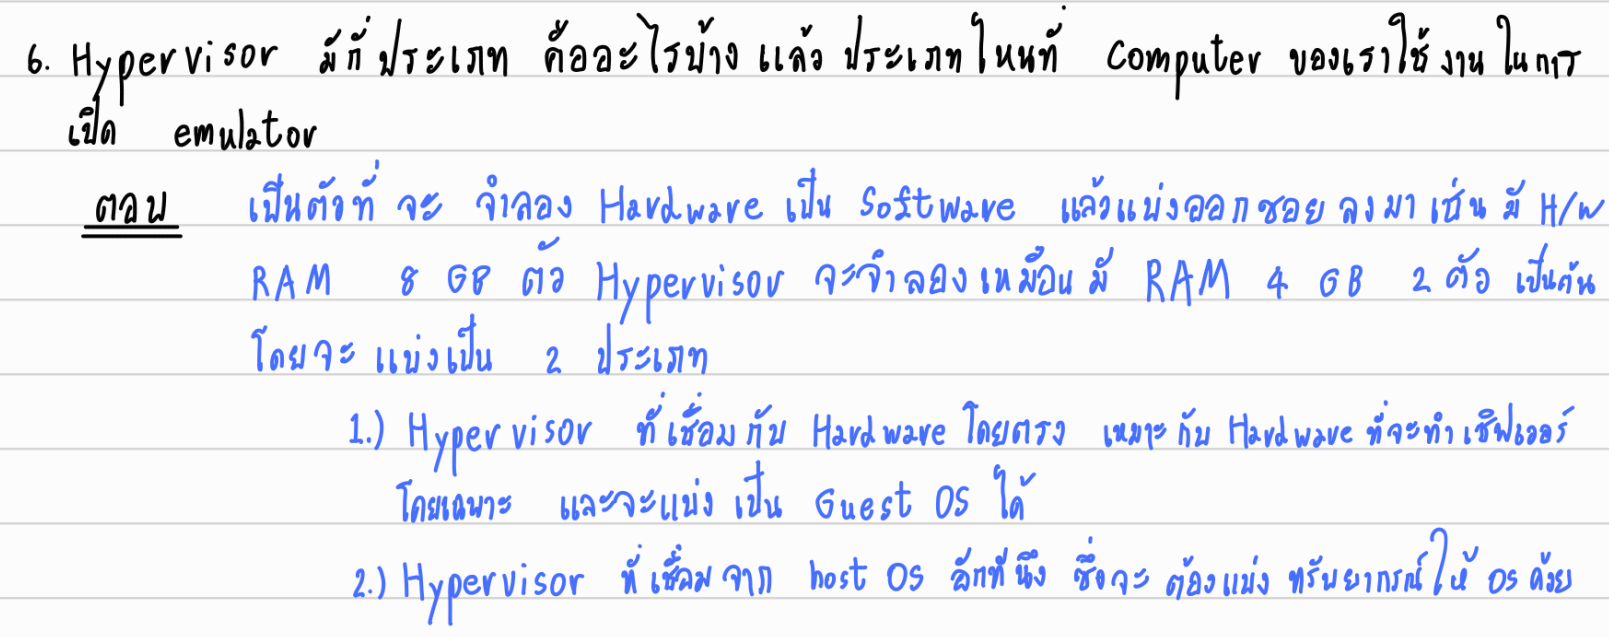 6. Hypervisor มีกี่ประเภท คืออะไรบ้าง แล้ว ประเภทไหนที่ Computer ของเราใช้งานในการ
เปิด emulator
ตอบ เป็นตัวที่ จะ จำลอง Hardware เป็น Software แล้วแบ่งออกซอยลงมา เช่น มี H/W
RAM 8 GB ตัว Hypervisor จะจำลองเหมือนมี RAM 4 GB 2 ตัว เป็นต้น
โดยจะ แบ่งเป็น 2 ประเภท
1.) Hypervisor ที่เชื่อมกับ Hardware โดยตรง เหมาะกับ Hardware ที่จะทำเซิฟเวอร์
โดยเฉพาะ และจะแบ่ง เป็น Guest OS ได้
2.) Hypervisor ที่เชื่อมจาก host OS อีกทีนึง ซึ่งจะ ต้องแบ่ง ทรัพยากรณ์ให้ OS ด้วย